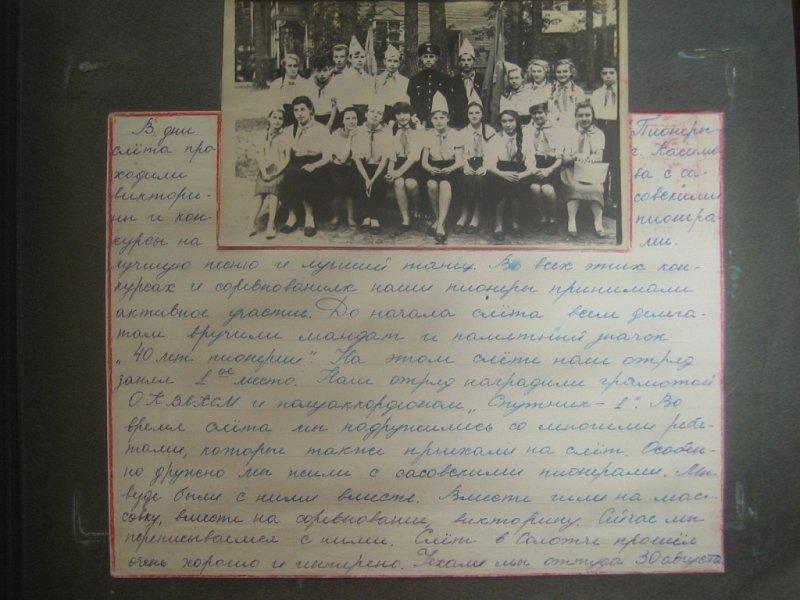 В дни
слёта про
ходили
виктори-
ны и кон-
курсы на
Пионеры
г. Касимо
ва с са-
совскими
пионера-
ми.
лучшую песню и лучший танец. Во всех этих кон-
курсах и соревнованиях наши пионеры принимали
активное участие. До начала слёта всем делега-
там вручили мандат и памятный значок
„40 лет пионерии". На этом слёте наш отряд
занял 1ое место. Наш отряд наградили грамотой
ОК ВЛКСМ и полуаккордеоном „Спутник-1". Во
время слёта мы подружились со многими ребя-
тами, которые также приехали на слёт. Особен-
но дружно мы жили с сасовскими пионерами. Мы
везде были с ними вместе. Вместе шли на мас-
совку, вместе на соревнование, викторину. Сейчас мы
переписываемся с ними. Слёт в Солотче прошёл
очень хорошо и интересно. Уехали мы оттуда 30 августа